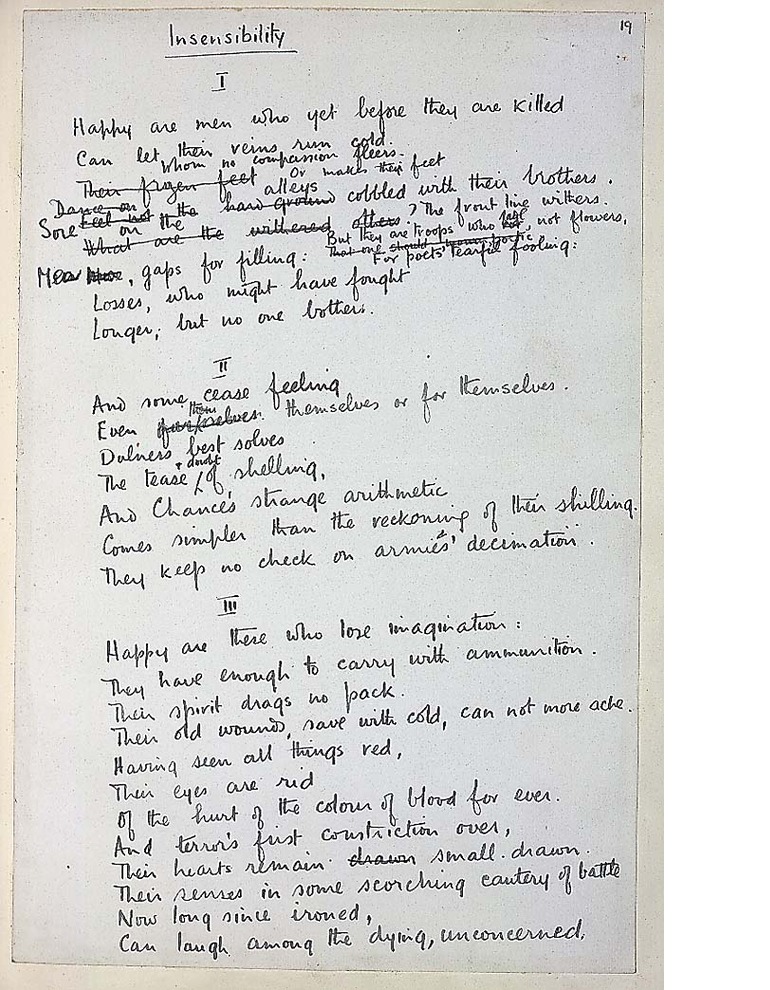 19
Insensibility
I
Happy are men who yet before they are killed
Can let their veins run cold.
Whom no compassion fleers.
Or makes their feet
Their frozen feet alleys
Dance on
Sore feel not on the the hard ground cobbled with their brothers.
What are the withered others? The front line withers.
But they are troops who fade, not flowers,
That one should
For poets' tearful fooling:
Men, gaps for filling:
Losses, who might have fought
Longer; but no one bothers.
II
And some cease feeling
Even themselves or for themselves.
them
Dulness best solves
The tease & doubt of shelling,
And Chance's strange arithmetic
Comes simpler than the reckoning of their shilling.
They keep no check on armies' decimation.
III
Happy are these who lose imagination:
They have enough to carry with ammunition.
Their spirit drags no pack.
Their old wounds, save with cold, can not more ache.
Having seen all things red,
Their eyes are rid
Of the hurt of the colour of blood for ever.
And terror's first constriction over,
Their hearts remain drawn small-drawn.
Their senses in some scorching cautery of battle
Now long since ironed,
Can laugh among the dying, unconcerned.